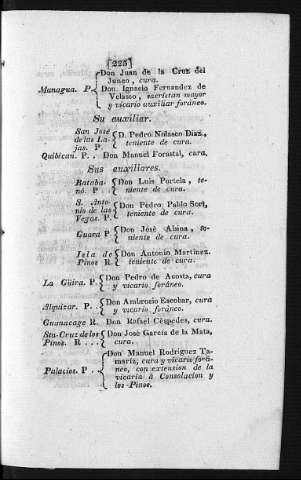 [225]
Don Juan de la Cruz del
Junco, cura.
Managua. P. Don Ignacio Fernandez de
Velasco, sacristan mayor
y vicario auxiliar foráneo.
Su auxiliar.
San José
de las La- D. Pedro Nolasco Diaz,
jas. P. teniente de cura.
Quibican. P. . Don Manuel Forastal, cura.
Sus auxiliares.
Bataba- Don Luis Portela, te-
nó. P. niente de cura.
S. Anto-
nio de las Don Pedro Pablo Sori,
Vegas. P. teniente de cura.
Guara P Don José Alsina, te-
niente de cura.
Isla de Don Antonio Martinez,
Pinos R. teniente de cura.
La Güira. P. Don Pedro de Acosta, cura
y vicario foráneo.
Alquizar. P. . Don Ambrosio Escobar, cura
y vicario foráneo.
Guanacage R. Don Rafael Céspedes, cura.
Sta. Cruz de los Don José García de la Mata,
Pinos. R . . . cura.
Don Manuel Rodriguez Ta-
maría, cura y vicario forá-
Palacios. P . neo, con extension de la
vicaría á Consolacion y
los Pinos.